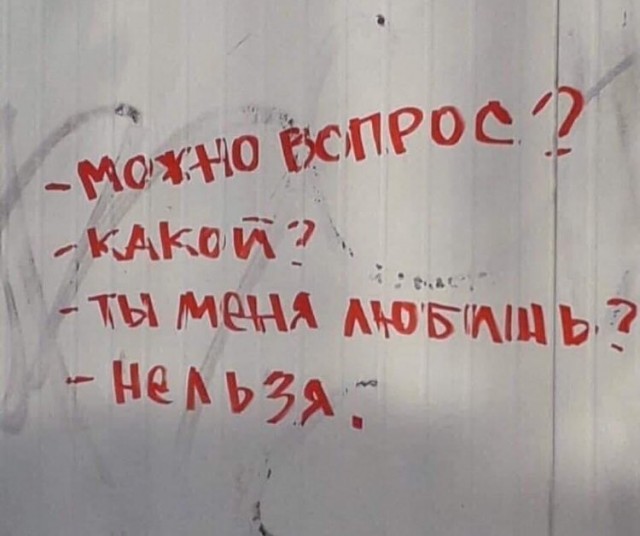 - можно вопрос?
- какой?
- ты меня любишь?
- нельзя.